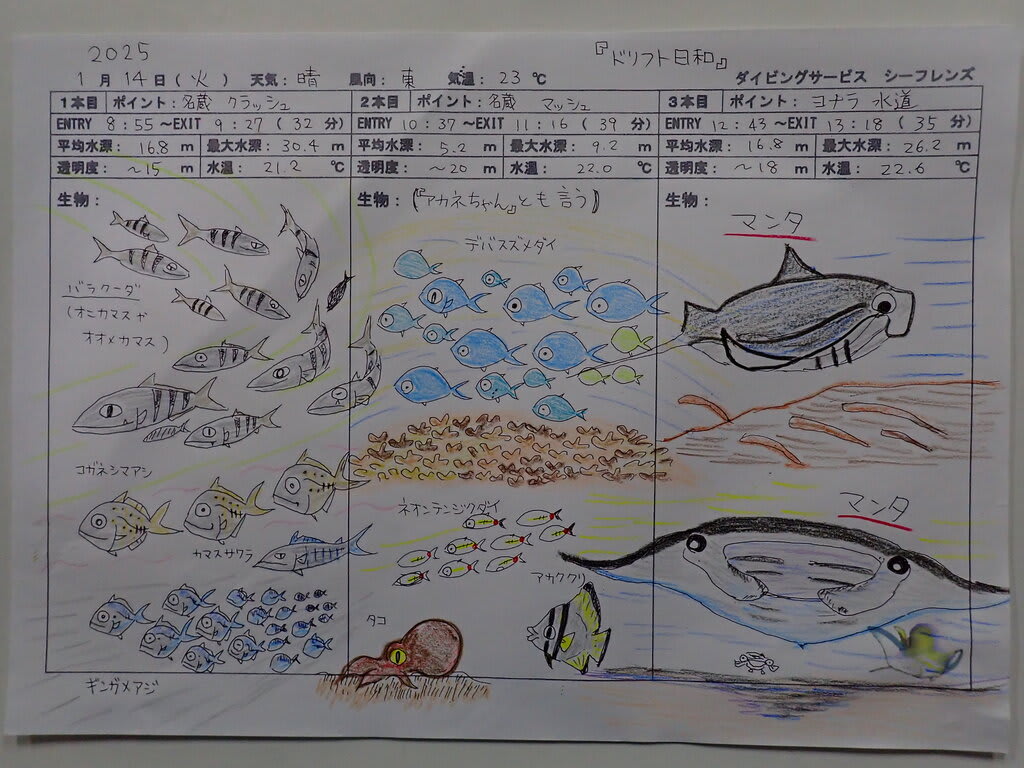 2025
『ドリフト日和』
1月14日(火) 天気:晴 風向:東 気温:23℃ ダイビングサービス シーフレンズ
1本目 ポイント:名蔵 クラッシュ
ENTRY 8:55~EXIT 9:27(32分)
平均水深: 16.8 m 最大水深: 30.4 m
透明度: ~15 m 水温: 21.2 ℃
生物:
バラクーダ
(オニカマスや
オオメカマス)
コガネシマアジ
カマスサワラ
ギンガメアジ
2本目 ポイント:名蔵 マッシュ
ENTRY 10:37~EXIT 11:16(39分)
平均水深: 5.2 m 最大水深: 9.2 m
透明度: ~20 m 水温: 22.0 ℃
生物:(『アカネちゃん』とも言う)
デバスズメダイ
ネオンテンジクダイ
アカククリ
タコ
3本目 ポイント:ヨナラ水道
ENTRY 12:43~EXIT 13:18(35分)
平均水深: 16.8 m 最大水深: 26.2 m
透明度: ~18 m 水温: 22.6 ℃
生物:
マンタ
マンタ